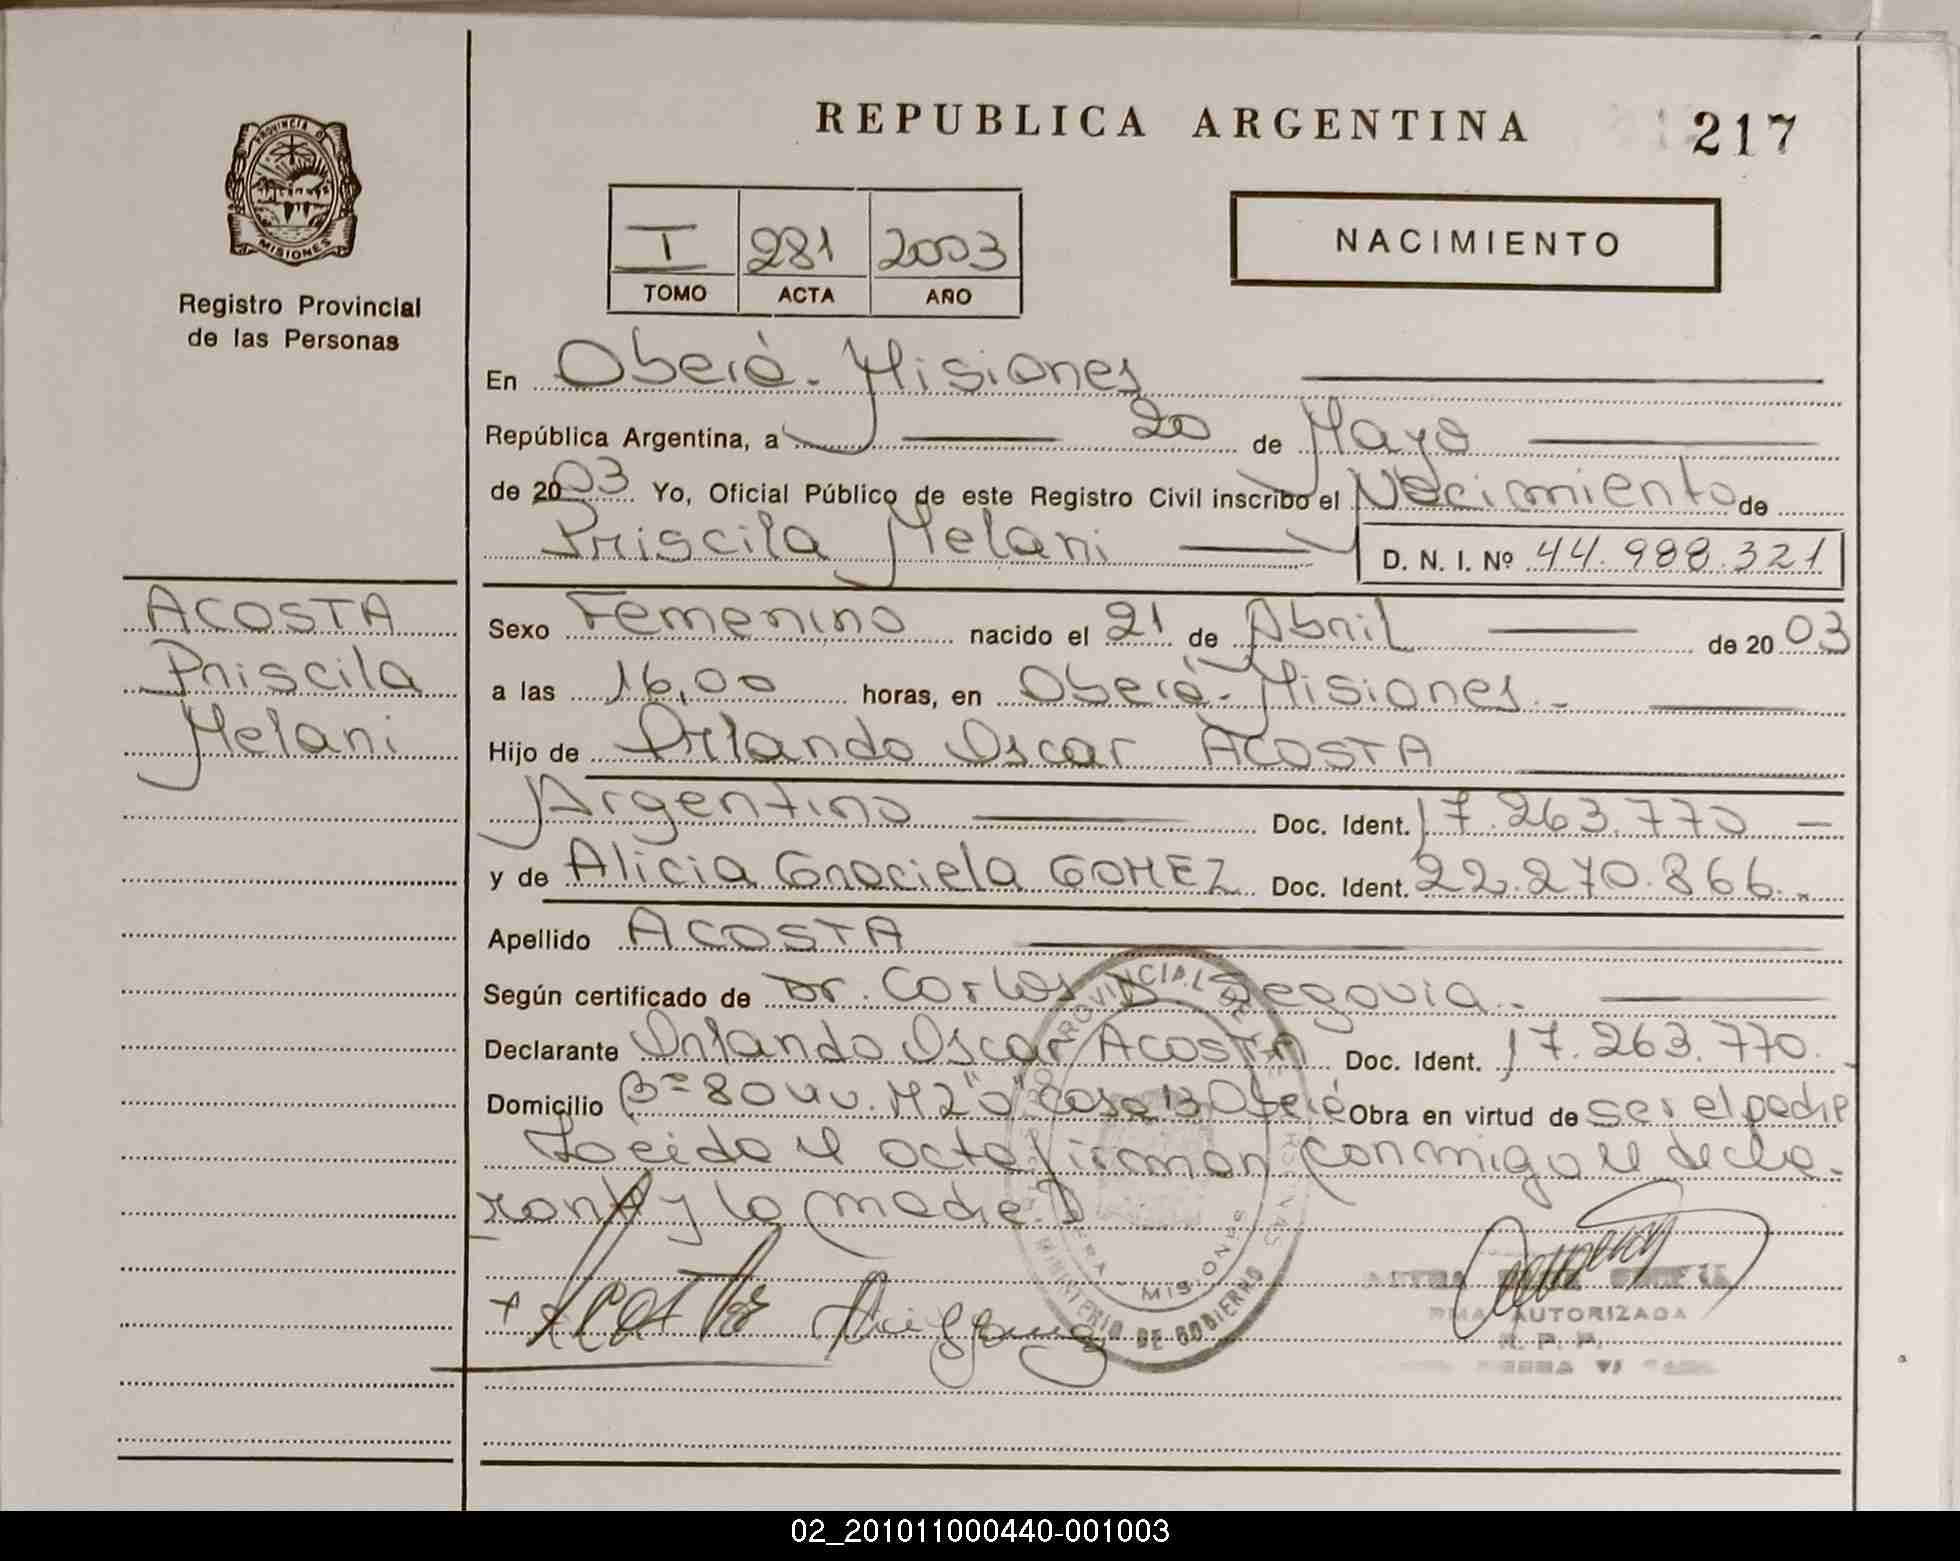 REPUBLICA ARGENTINA
217
PROVINCIA DE
MISIONES
Registro Provincial
de las Personas
I 281 2003
TOMO ACTA AÑO
NACIMIENTO
En Oberá - Misiones
República Argentina, a 20 de Mayo
de 2003 Yo, Oficial Público de este Registro Civil inscribo el Nacimiento de
Priscila Melani
D. N. I. Nº 44.988.321
ACOSTA
Priscila
Melani
Sexo Femenino nacido el 21 de Abril de 2003
a las 16,00 horas, en Oberá - Misiones -
Hijo de Orlando Oscar ACOSTA
Argentino Doc. Ident. 17.263.770 -
y de Alicia Graciela GOMEZ Doc. Ident. 22.270.866.-
Apellido ACOSTA
Según certificado de Dr. Carlos D. Segovia.
Declarante Orlando Oscar ACOSTA Doc. Ident. 17.263.770.
Domicilio Bº 80 VV. M2 "O" Casa 13 Oberá Obra en virtud de ser el padre
Leída el acta firman conmigo el decla-
rante y la madre.
PROVINCIAL DE
MISIONES
MINISTERIO DE GOBIERNO
Acosta
AUTORIZADA
R. P. P.
02_201011000440-001003